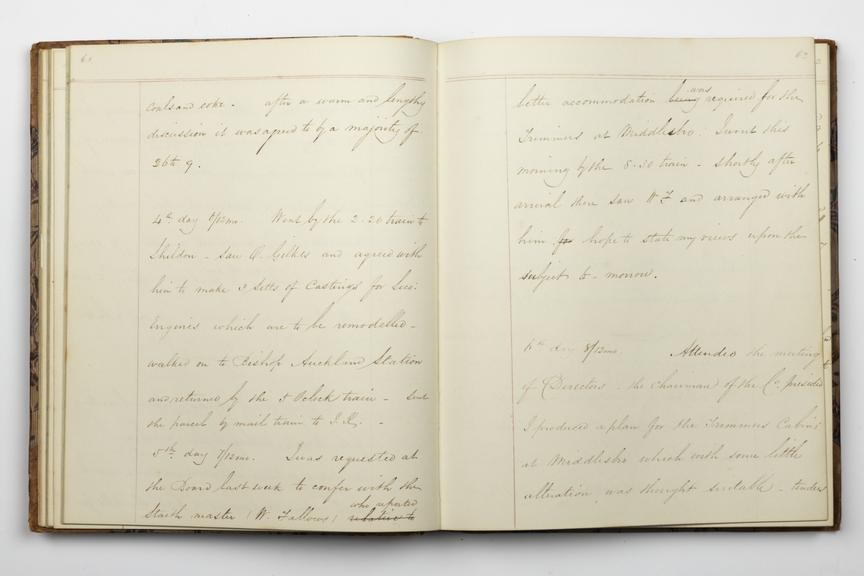 61
coals and coke. after a warm and lengthy
discussion it was agreed to by a majority of
26 to 9.
4th day 6/12mo. Went by the 2.20 train to
Shildon - saw O. Gilkes and agreed with
him to make 3 Setts of Castings for Loco:
Engines which are to be remodelled -
walked on to Bishop Auckland Station
and returned by the 5 OClock train - send
the parcel by mail train to
5th day 7/12mo. I was requested at
the Board last week to confer with the
Staith master (W. Fallows) who reported relative to
62
better accommodation being was required for the
Trimmers at Middlesbro: I went this
morning by the 8.30 train - shortly after
arrival there saw W F and arranged with
him for hope to state my views upon the
subject to-morrow.
6th day 8/12mo. Attended the meeting
of Directors - the chairman of the Co. presided
I produced a plan for the Trimmers Cabin
at Middlesbro which with some little
alteration was thought suitable - tenders